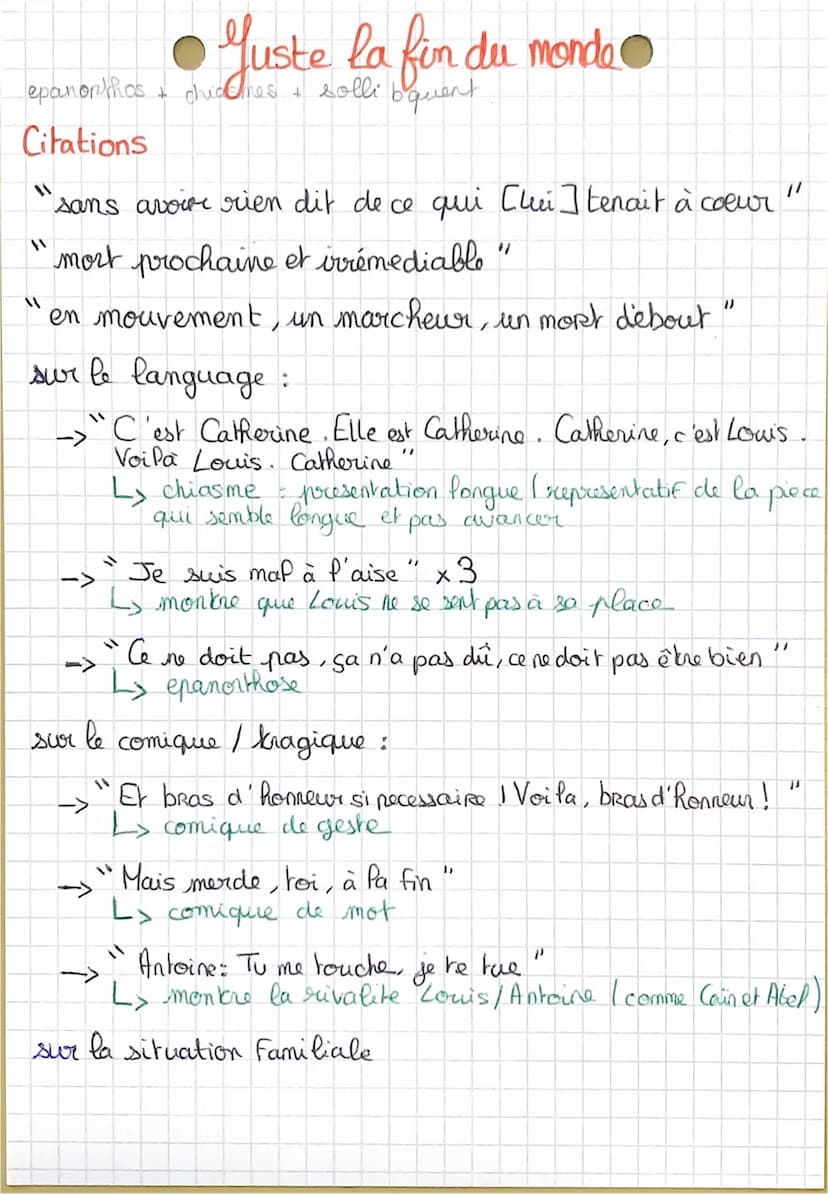 Juste la fin du monde
epanorthos + chiasmes + solli b'quent
Citations
"sans avoir rien dit de ce qui [lui] tenait à coeur"
"mort prochaine et irrémediable"
"en mouvement, un marcheur, un mort debout"
sur le language :
-> "C'est Catherine. Elle est Catherine. Catherine, c'est Louis.
Voilà Louis. Catherine"
↳ chiasme : presentation longue (representatif de la piece
qui semble longue et pas avancer
-> "Je suis mal à l'aise" x3
↳ montre que Louis ne se sent pas à sa place
-> "Ce ne doit pas, ça n'a pas dû, ce ne doit pas être bien"
↳ epanorthose
sur le comique / tragique :
-> "Et bras d'honneur si necessaire ! Voila, bras d'honneur !"
↳ comique de geste
-> "Mais merde, toi, à la fin"
↳ comique de mot
-> "Antoine: Tu me touche, je te tue"
↳ montre la rivalite Louis/Antoine (comme Cain et Abel)
sur la situation Familiale